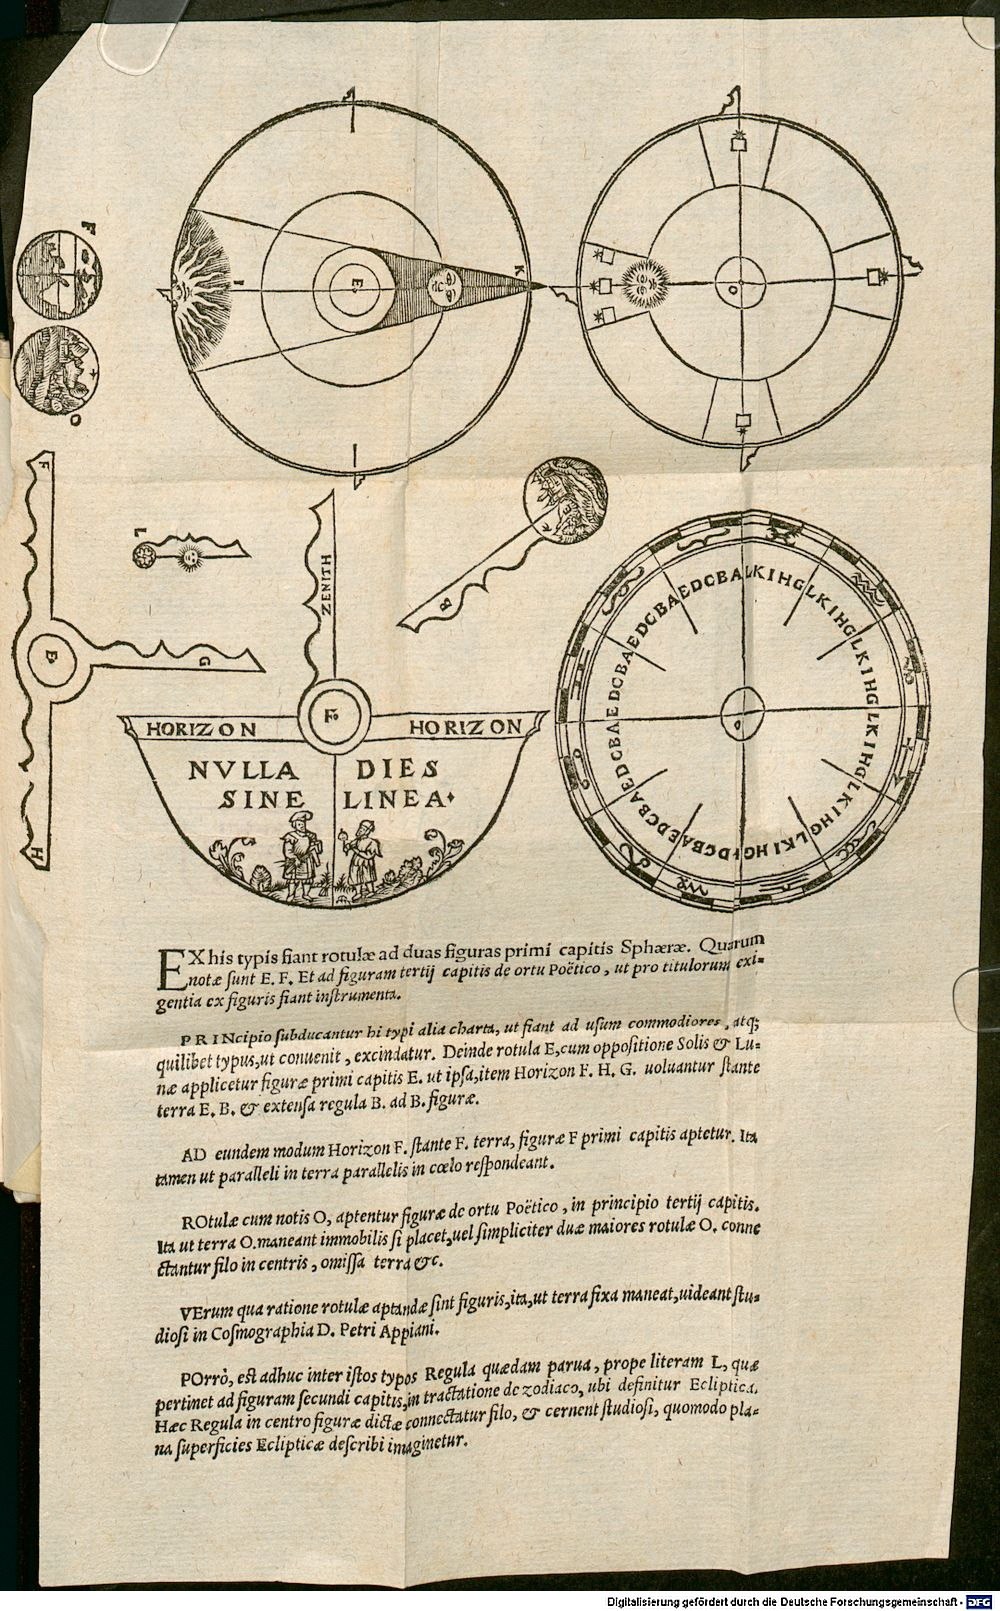 F
O
I
E
K
O
F
L
ZENITH
B
G
B
F
HORIZON HORIZON
NVLLA DIES
SINE LINEA
H
LKIHGLKIHGLKIHGLKIHGLKIHGLKIHG
DCBAEDCBAEDCBAEDCBAEDCBAEDCBA
EX his typis fiant rotulæ ad duas figuras primi capitis Sphæræ. Quarum
notæ sunt E. F. Et ad figuram tertij capitis de ortu Poëtico, ut pro titulorum exi=
gentia ex figuris fiant instrumenta.
PRINcipio subducantur hi typi alia charta, ut fiant ad usum commodiores, atq;
quilibet typus, ut conuenit, excindatur. Deinde rotula E, cum oppositione Solis & Lu=
næ applicetur figuræ primi capitis E. ut ipsa, item Horizon F. H. G. uoluantur stante
terra E. B. & extensa regula B. ad B. figuræ.
AD eundem modum Horizon F. stante F. terra, figuræ F primi capitis aptetur. Ita
tamen ut paralleli in terra parallelis in cœlo respondeant.
ROtulæ cum notis O, aptentur figuræ de ortu Poëtico, in principio tertij capitis.
Ita ut terra O. maneant immobilis si placet, uel simpliciter duæ maiores rotulæ O. conne
ctantur filo in centris, omissa terra &c.
VErum qua ratione rotulæ aptandæ sint figuris, ita, ut terra fixa maneat, uideant stu=
diosi in Cosmographia D. Petri Appiani.
POrrò, est adhuc inter istos typos Regula quædam parua, prope literam L, quæ
pertinet ad figuram secundi capitis, in tractatione de zodiaco, ubi definitur Ecliptica.
Hæc Regula in centro figuræ dictæ connectatur filo, & cernent studiosi, quomodo pla=
na superficies Eclipticæ describi imaginetur.
Digitalisierung gefördert durch die Deutsche Forschungsgemeinschaft - DFG